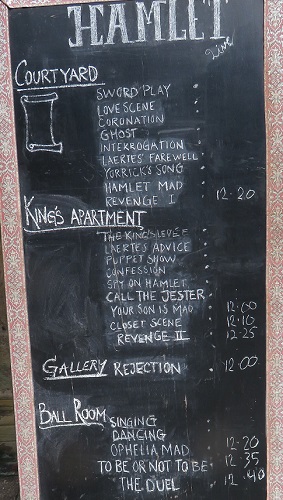 HAMLET
Live
COURTYARD
SWORD PLAY
LOVE SCENE
CORONATION
GHOST
INTERROGATION
LAERTES' FAREWELL
YORRICK'S SONG
HAMLET MAD
REVENGE I 12.20
KING'S APARTMENT
THE KING'S LEVEE
LAERTES ADVICE
PUPPET SHOW
CONFESSION
SPY ON HAMLET
CALL THE JESTER
YOUR SON IS MAD 12.00
CLOSET SCENE 12.10
REVENGE II 12.25
GALLERY REJECTION 12.00
BALL ROOM
SINGING
DANCING
OPHELIA MAD 12.20
TO BE OR NOT TO BE 12.35
THE DUEL 12.40